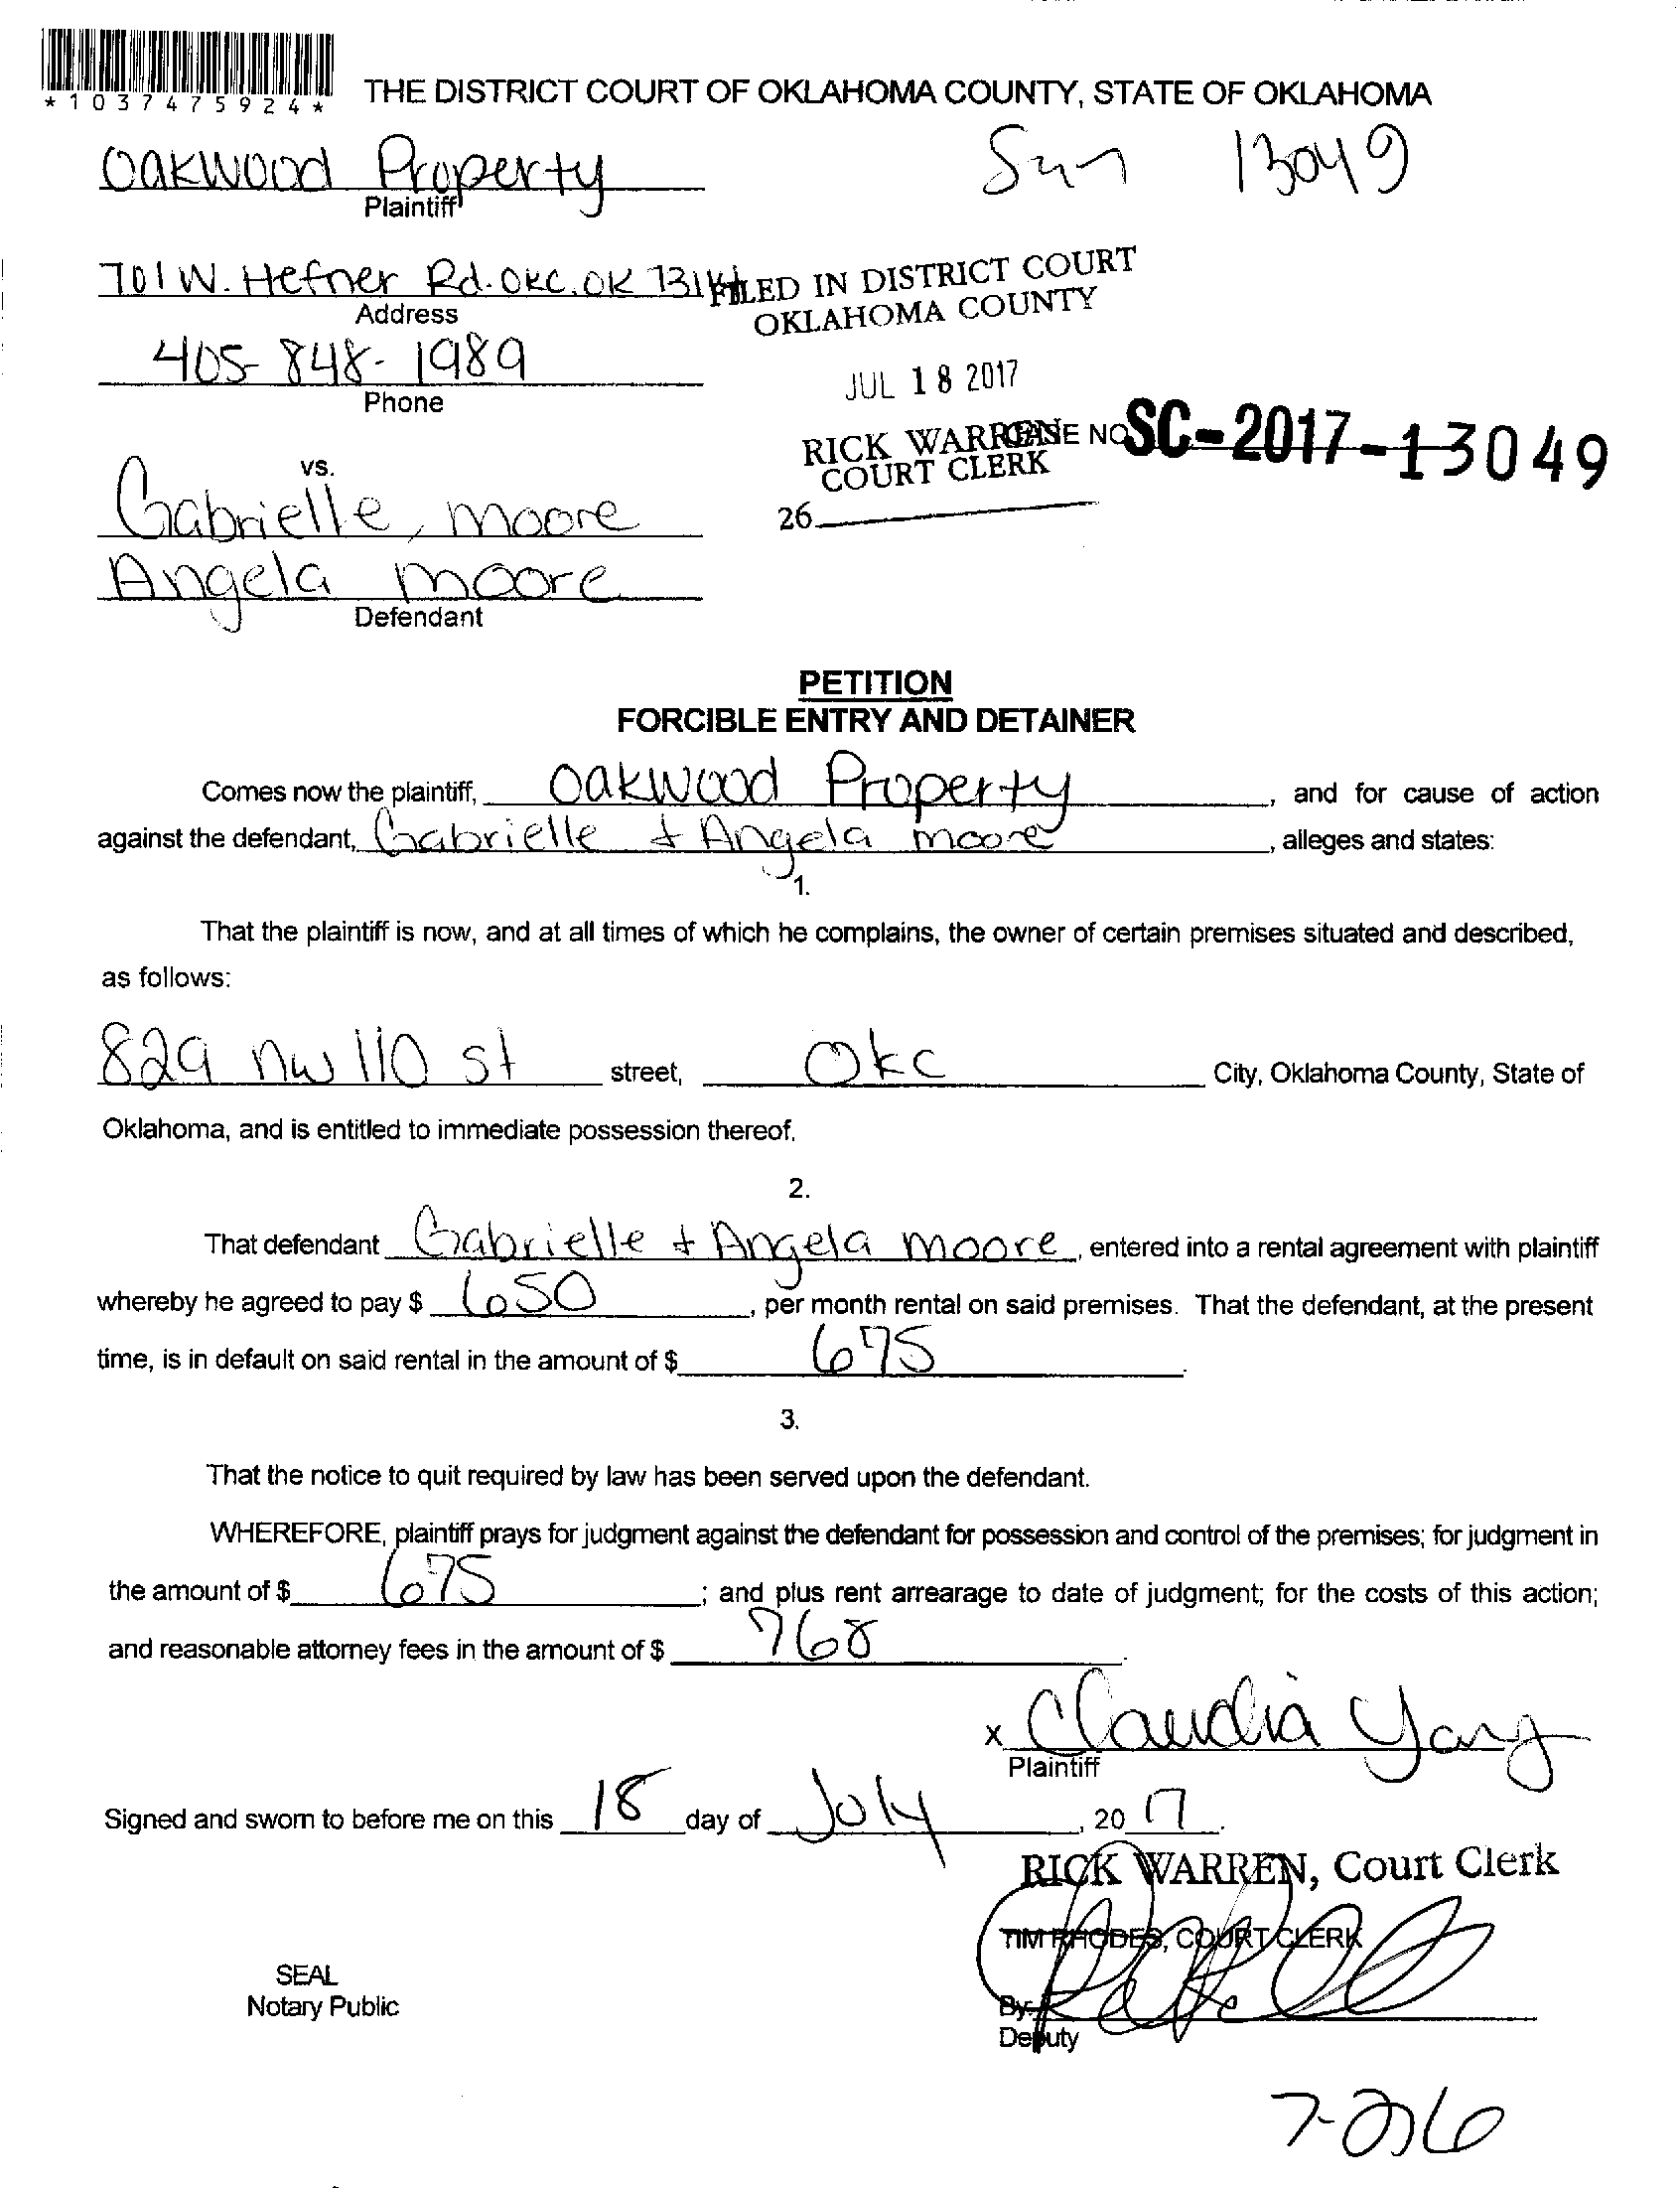 *1037475924*
THE DISTRICT COURT OF OKLAHOMA COUNTY, STATE OF OKLAHOMA
Oakwood Property
13049
Plaintiff
701 W. Hefner Rd. OKC, OK 73114
FILED IN DISTRICT COURT
OKLAHOMA COUNTY
Address
405-848-1989
Phone
JUL 18 2017
RICK WARREN
COURT CLERK
CASE NO. SC-2017-13049
26
vs.
Gabrielle, Moore
Angela Moore
Defendant
PETITION
FORCIBLE ENTRY AND DETAINER
Comes now the plaintiff, Oakwood Property, and for cause of action
against the defendant, Gabrielle + Angela Moore, alleges and states:
1.
That the plaintiff is now, and at all times of which he complains, the owner of certain premises situated and described,
as follows:
829 NW 110 St street, OKC City, Oklahoma County, State of
Oklahoma, and is entitled to immediate possession thereof.
2.
That defendant Gabrielle + Angela Moore, entered into a rental agreement with plaintiff
whereby he agreed to pay $ 650, per month rental on said premises. That the defendant, at the present
time, is in default on said rental in the amount of $ 675.
3.
That the notice to quit required by law has been served upon the defendant.
WHEREFORE, plaintiff prays for judgment against the defendant for possession and control of the premises; for judgment in
the amount of $ 675; and plus rent arrearage to date of judgment; for the costs of this action;
and reasonable attorney fees in the amount of $ 768.
x Claudia Yang
Plaintiff
Signed and sworn to before me on this 18 day of July, 20 17.
RICK WARREN, Court Clerk
TIM RHODES, COURT CLERK
SEAL
Notary Public
By:
Deputy